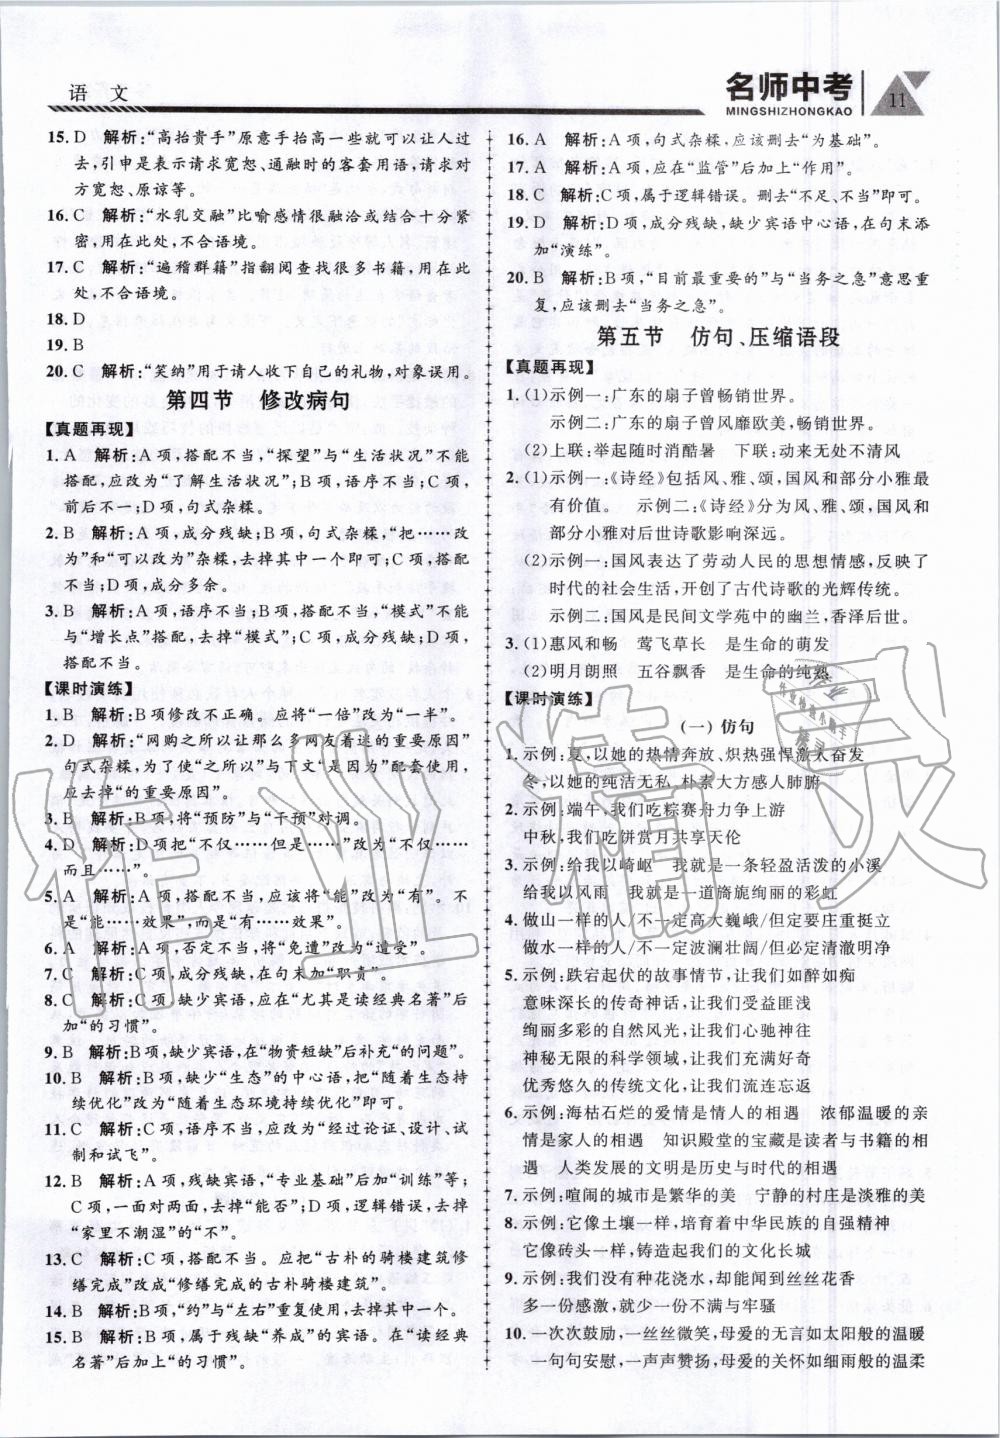 语 文
名师中考
MINGSHIZHONGKAO
11
15. D 解析:“高抬贵手”原意手抬高一些就可以让人过
去,引申是表示请求宽恕、通融时的客套用语,请求对
方宽恕、原谅等。
16. C 解析:“水乳交融”比喻感情很融洽或结合十分紧
密,用在此处,不合语境。
17. C 解析:“遍稽群籍”指翻阅查找很多书籍,用在此
处,不合语境。
18. D
19. B
20. C 解析:“笑纳”用于请人收下自己的礼物,对象误用。
第四节 修改病句
【真题再现】
1. A 解析:A项,搭配不当,“探望”与“生活状况”不能
搭配,应改为“了解生活状况”;B项,语序不当;C项,
前后不一;D项,句式杂糅。
2. B 解析:A项,成分残缺;B项,句式杂糅,“把……改
为”和“可以改为”杂糅,去掉其中一个即可;C项,搭配
不当;D项,成分多余。
3. B 解析:A项,语序不当;B项,搭配不当,“模式”不能
与“增长点”搭配,去掉“模式”;C项,成分残缺;D项,
搭配不当。
【课时演练】
1. B 解析:B项修改不正确。应将“一倍”改为“一半”。
2. D 解析:“网购之所以让那么多网友着迷的重要原因”
句式杂糅,为了使“之所以”与下文“是因为”配套使用,
应去掉“的重要原因”。
3. B 解析:B项,将“预防”与“干预”对调。
4. D 解析:D项把“不仅……但是……”改为“不仅……
而且……”。
5. A 解析:A项,搭配不当,应该将“能”改为“有”。不
是“能……效果”,而是“有……效果”。
6. A 解析:A项,否定不当,将“免遭”改为“遭受”。
7. C 解析:C项,成分残缺,在句末加“职责”。
8. C 解析:C项,缺少宾语,应在“尤其是读经典名著”后
加“的习惯”。
9. B 解析:B项,缺少宾语,在“物资短缺”后补充“的问题”。
10. B 解析:B项,缺少“生态”的中心语,把“随着生态持
续优化”改为“随着生态环境持续优化”即可。
11. C 解析:C项,语序不当,应改为“经过论证、设计、试
制和试飞”。
12. B 解析:A项,残缺宾语,“专业基础”后加“训练”等;
C项,一面对两面,去掉“能否”;D项,逻辑错误,去掉
“家里不潮湿”的“不”。
13. C 解析:C项,搭配不当。应把“古朴的骑楼建筑修
缮完成”改成“修缮完成的古朴骑楼建筑”。
14. B 解析:B项,“约”与“左右”重复使用,去掉其中一个。
15. B 解析:B项,属于残缺“养成”的宾语。在“读经典
名著”后加上“的习惯”。
16. A 解析:A项,句式杂糅,应该删去“为基础”。
17. A 解析:A项,应在“监管”后加上“作用”。
18. C 解析:C项,属于逻辑错误。删去“不足、不当”即可。
19. D 解析:D项,成分残缺,缺少宾语中心语,在句末添
加“演练”。
20. B 解析:B项,“目前最重要的”与“当务之急”意思重
复,应该删去“当务之急”。
第五节 仿句、压缩语段
【真题再现】
1. (1)示例一:广东的扇子曾畅销世界。
示例二:广东的扇子曾风靡欧美,畅销世界。
(2)上联:举起随时消酷暑 下联:动来无处不清风
2. (1)示例一:《诗经》包括风、雅、颂,国风和部分小雅最
有价值。 示例二:《诗经》分为风、雅、颂,国风和
部分小雅对后世诗歌影响深远。
(2)示例一:国风表达了劳动人民的思想情感,反映了
时代的社会生活,开创了古代诗歌的光辉传统。
示例二:国风是民间文学苑中的幽兰,香泽后世。
3. (1)惠风和畅 莺飞草长 是生命的萌发
(2)明月朗照 五谷飘香 是生命的纯熟
【课时演练】
(一)仿句
1. 示例:夏,以她的热情奔放、炽热强悍激太奋发
冬,以她的纯洁无私、朴素大方感人肺腑
2. 示例:端午,我们吃粽赛舟力争上游
中秋,我们吃饼赏月共享天伦
3. 示例:给我以崎岖 我就是一条轻盈活泼的小溪
给我以风雨 我就是一道旖旎绚丽的彩虹
4. 做山一样的人/不一定高大巍峨/但定要庄重挺立
做水一样的人/不一定波澜壮阔/但必定清澈明净
5. 示例:跌宕起伏的故事情节,让我们如醉如痴
意味深长的传奇神话,让我们受益匪浅
绚丽多彩的自然风光,让我们心驰神往
神秘无限的科学领域,让我们充满好奇
优秀悠久的传统文化,让我们流连忘返
6. 示例:海枯石烂的爱情是情人的相遇 浓郁温暖的亲
情是家人的相遇 知识殿堂的宝藏是读者与书籍的相
遇 人类发展的文明是历史与时代的相遇
7. 示例:喧闹的城市是繁华的美 宁静的村庄是淡雅的美
8. 示例:它像土壤一样,培育着中华民族的自强精神
它像砖头一样,铸造起我们的文化长城
9. 示例:我们没有种花浇水,却能闻到丝丝花香
多一份感激,就少一份不满与牢骚
10. 一次次鼓励,一丝丝微笑,母爱的无言如太阳般的温暖
一句句安慰,一声声赞扬,母爱的关怀如细雨般的温柔
作业精灵